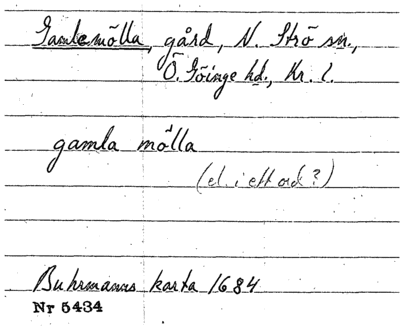 Gamlemölla, gård, N. Strö sn.,
Ö. Göinge hd., Kr. l.
gamla mölla
(el. i ett ord?)
Buhrmanns karta 1684
Nr 5434